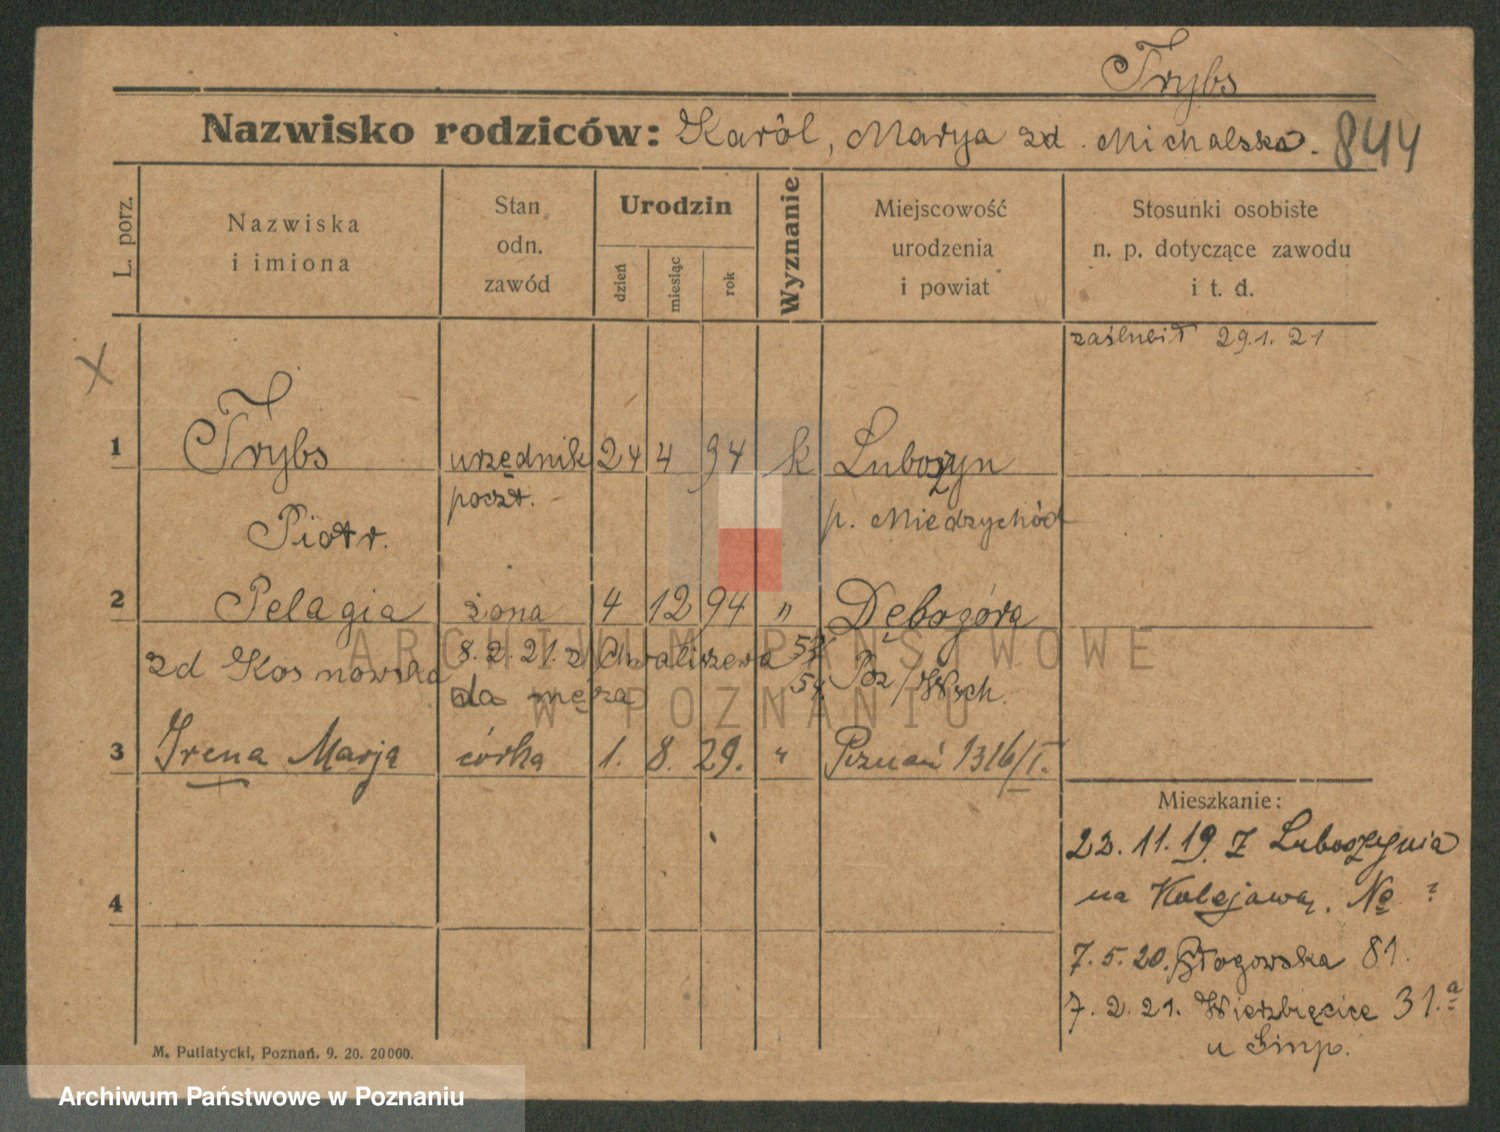 Trybs
Nazwisko rodziców: Karól, Marya zd. Michalska. 844
L. porz.
Nazwiska
i imiona
Stan
odn.
zawód
Urodzin
dzień
miesiąc
rok
Wyznanie
Miejscowość
urodzenia
i powiat
Stosunki osobiste
n. p. dotyczące zawodu
i t. d.
zaślubił 29.1.21
X
1 Trybs urzędnik 24 4 94 k Luboszyn
poczt.
Piotr. p. Miedzychód
2 Pelagia żona 4 12 94 " Dębogóra
zd Kosnowska 8.2.21. z Chwaliszewa 53/
54. Poz/Wsch.
da męża
3 Irena Marja córka 1. 8. 29. " Poznań 1316/I.
Mieszkanie:
23.11.19. z Luboszynia
na Kolejową. No ?
4
7.5.20. Głogowska 81.
7.2.21. Wierzbięcice 31.a
u
M. Putiatycki, Poznań. 9. 20. 20000.
ARCHIWUM PAŃSTWOWE
W POZNANIU
Archiwum Państwowe w Poznaniu